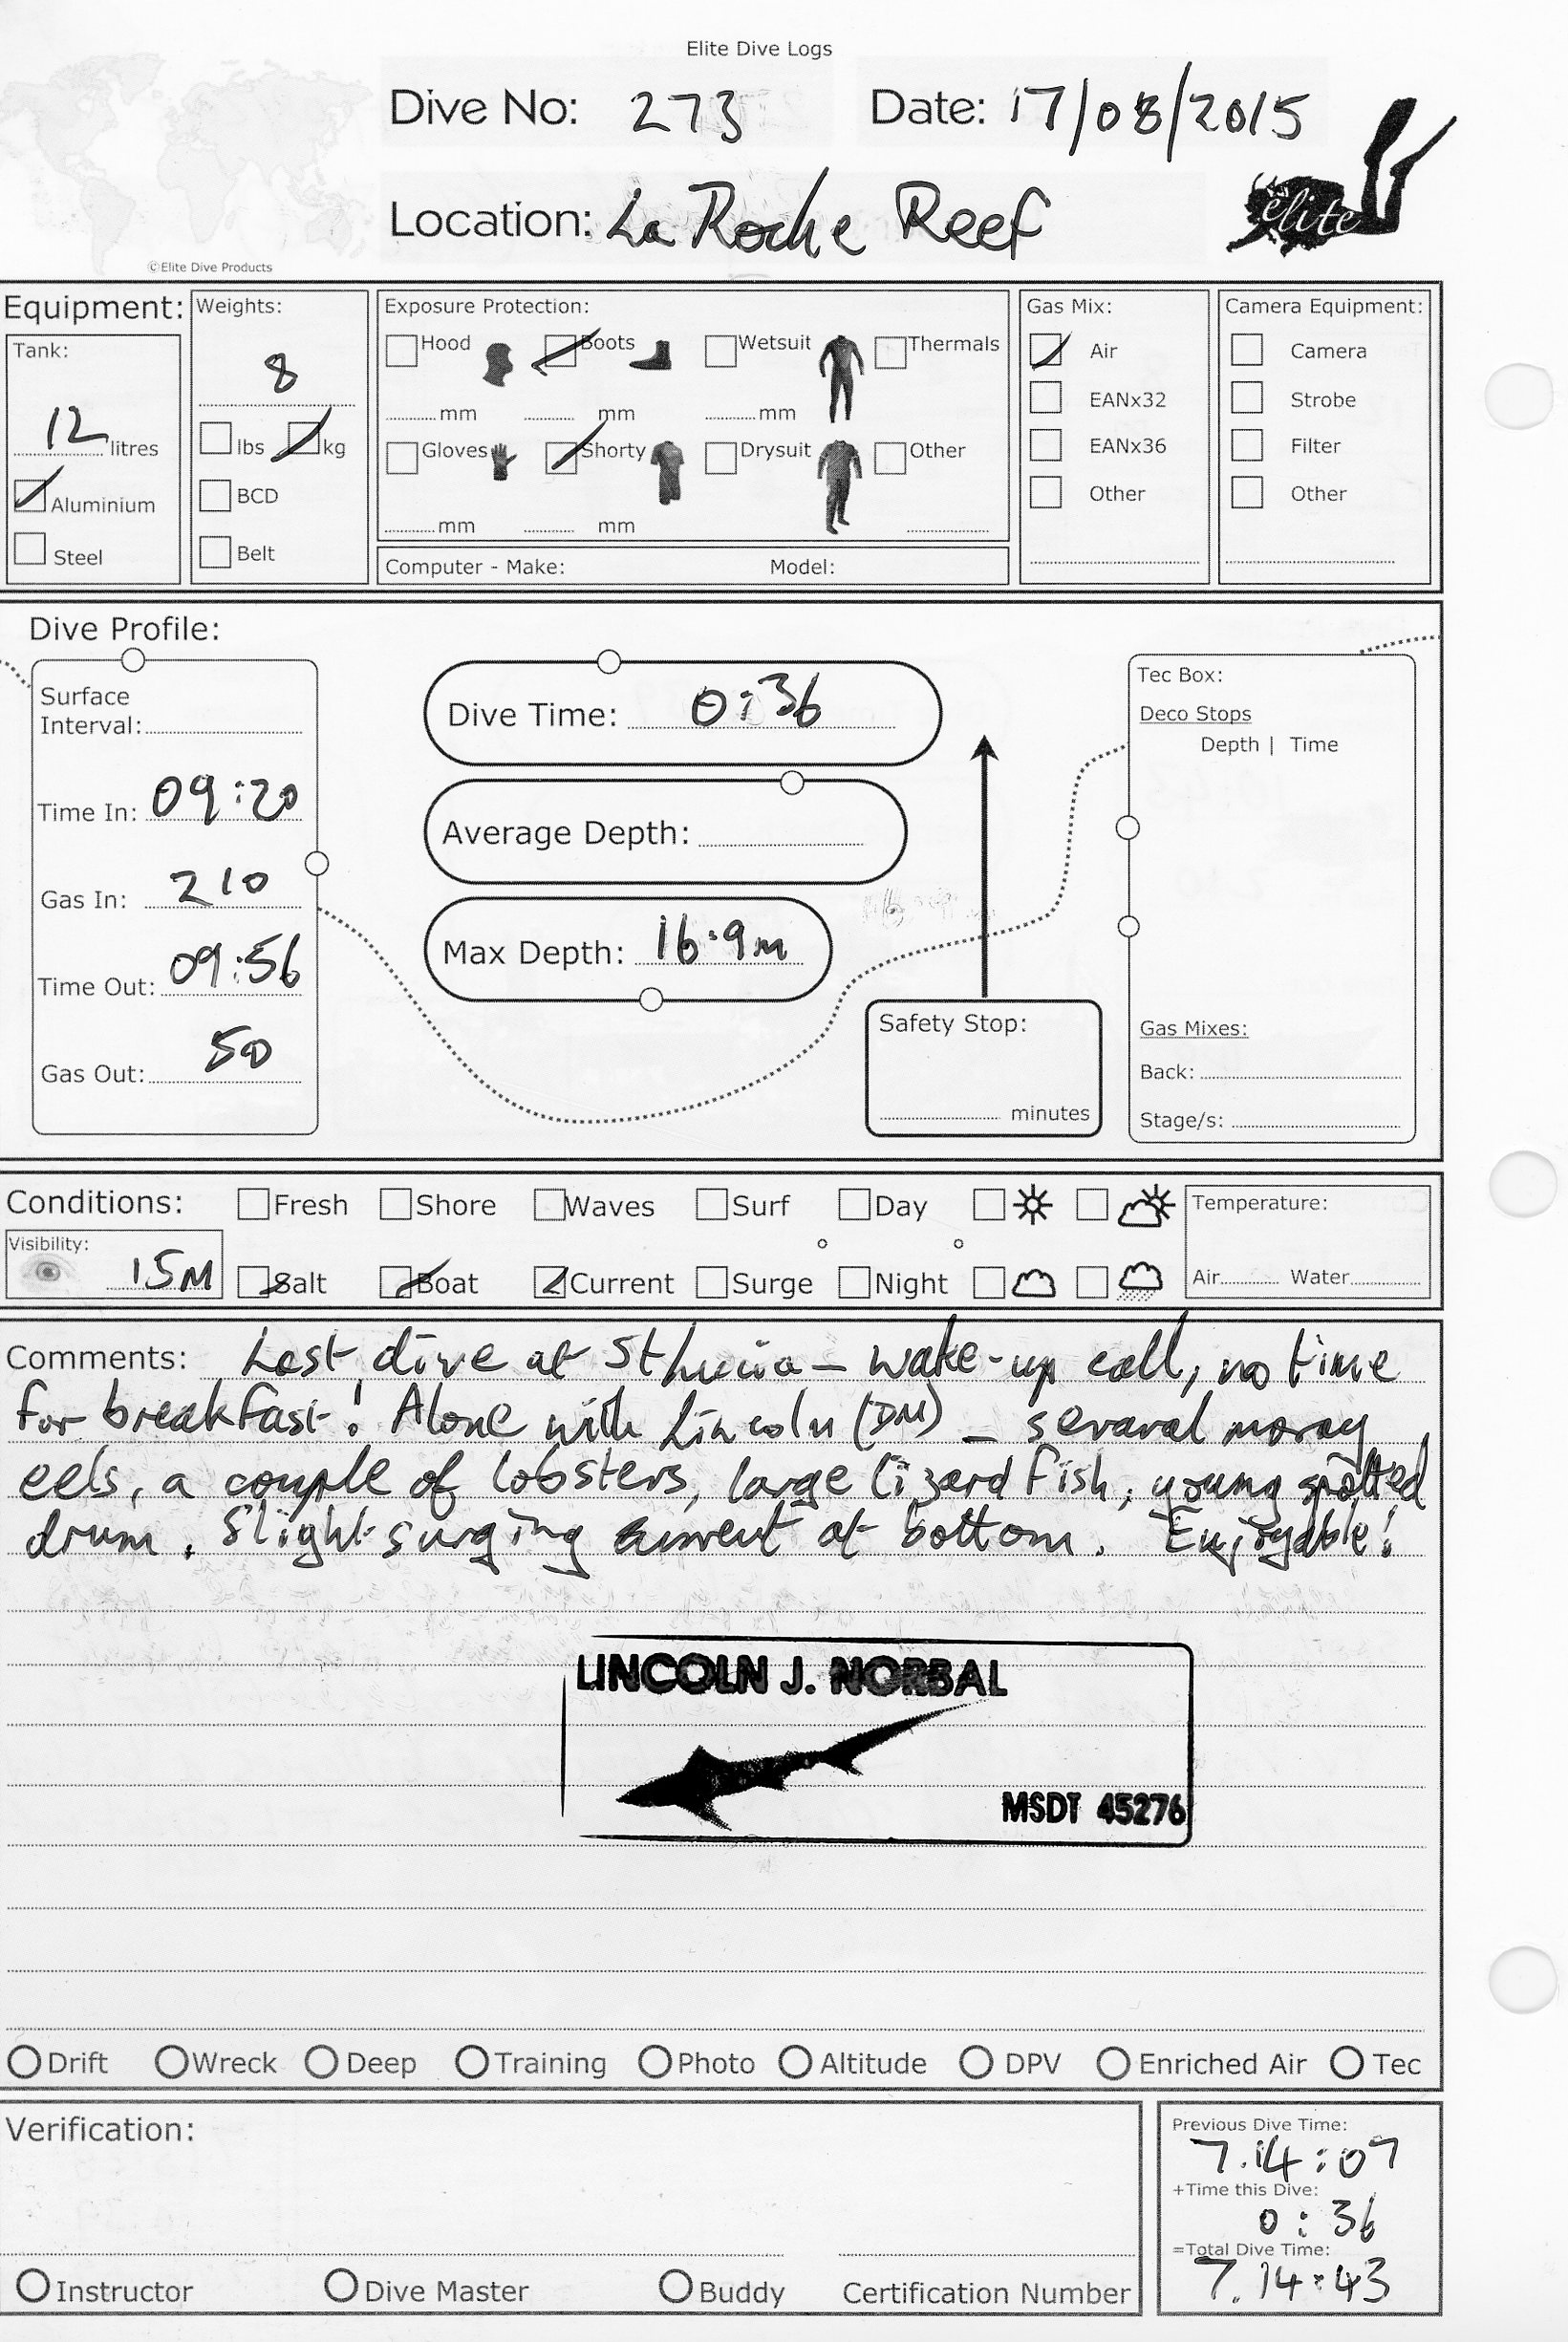 Elite Dive Logs
Dive No: 273 Date: 17/08/2015
Location: La Roche Reef
élite
©Elite Dive Products
Equipment:
Tank:
12 litres
Aluminium
Steel
Weights:
8
lbs kg
BCD
Belt
Exposure Protection:
Hood Boots Wetsuit Thermals
mm mm mm
Gloves Shorty Drysuit Other
mm mm
Computer - Make: Model:
Gas Mix:
Air
EANx32
EANx36
Other
Camera Equipment:
Camera
Strobe
Filter
Other
Dive Profile:
Surface
Interval:
Time In: 09:20
Gas In: 210
Time Out: 09:56
Gas Out: 50
Dive Time: 0:36
Average Depth:
Max Depth: 16.9m
Safety Stop:
minutes
Tec Box:
Deco Stops
Depth | Time
Gas Mixes:
Back:
Stage/s:
Conditions: Fresh Shore Waves Surf Day
Visibility: 15M
Salt Boat Current Surge Night
Temperature:
Air Water
Comments: Last dive at St Lucia - wake-up call, no time
for breakfast! Alone with Lincoln (DM) - several moray
eels, a couple of lobsters, large lizard fish, young spotted
drum. Slight surging current at bottom. Enjoyable!
LINCOLN J. NORBAL
MSDT 45276
Drift Wreck Deep Training Photo Altitude DPV Enriched Air Tec
Verification:
Instructor Dive Master Buddy Certification Number
Previous Dive Time:
7.14:07
+Time this Dive:
0:36
=Total Dive Time:
7.14:43